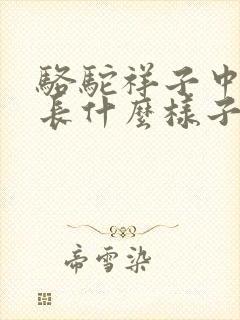 駱駝祥子中
長什麼樣子
帝雪染